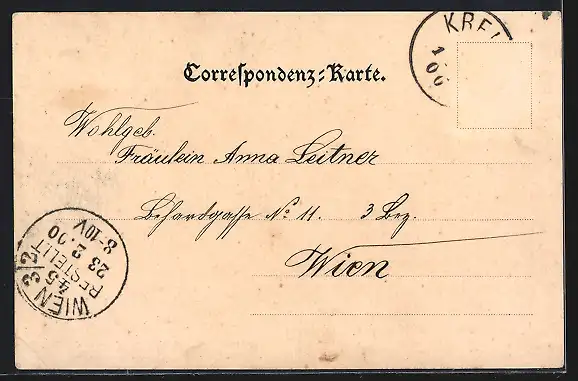 KRE
1
00
Correspondenz-Karte.
Wohlgeb.
Fräulein Anna Leitner
No 11. 3 Bez.
Wien
WIEN 3/2
45
BESTELLT
23 2 00
8-10V